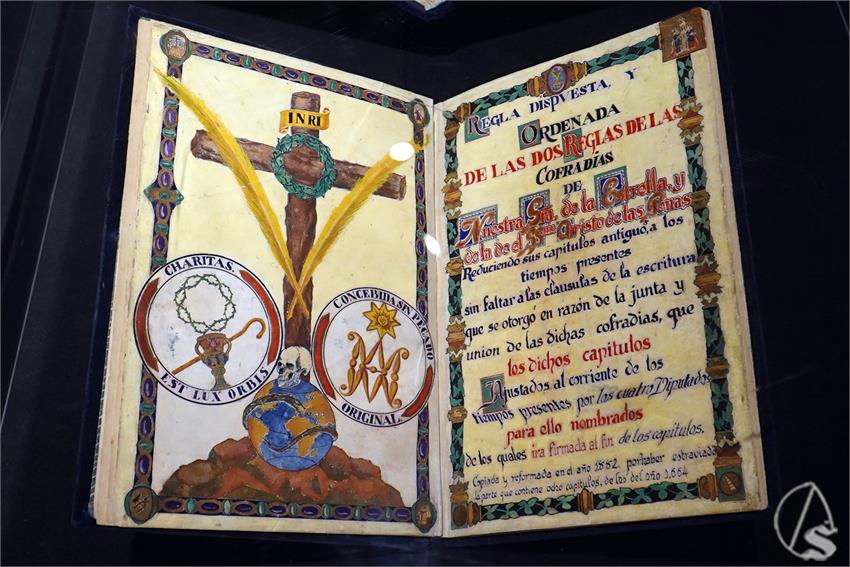 INRI
CHARITAS.
EST LUX ORBIS
CONCEBIDA SIN PECADO
ORIGINAL.
REGLA DISPVESTA, Y
ORDENADA
DE LAS DOS REGLAS DE LAS
COFRADÍAS
DE
Nuestra Sra. de la Estrella, y
de la de el Smo. Christo de las Penas
Reduciendo sus capitulos antiguo, a los
tiempos presentes
sin faltar a las clausulas de la escritura
que se otorgo en razón de la junta y
union de las dichas cofradias, que
los dichos capitulos
Ajustados al corriente de los
tiempos presentes por los cuatro Diputados
para ello nombrados
de los quales ira firmada al fin de los capitulos.
Copiada y reformada en el año 1882 por haber estraviada
la parte que contiene ocho capitulos, de las del año 1,664